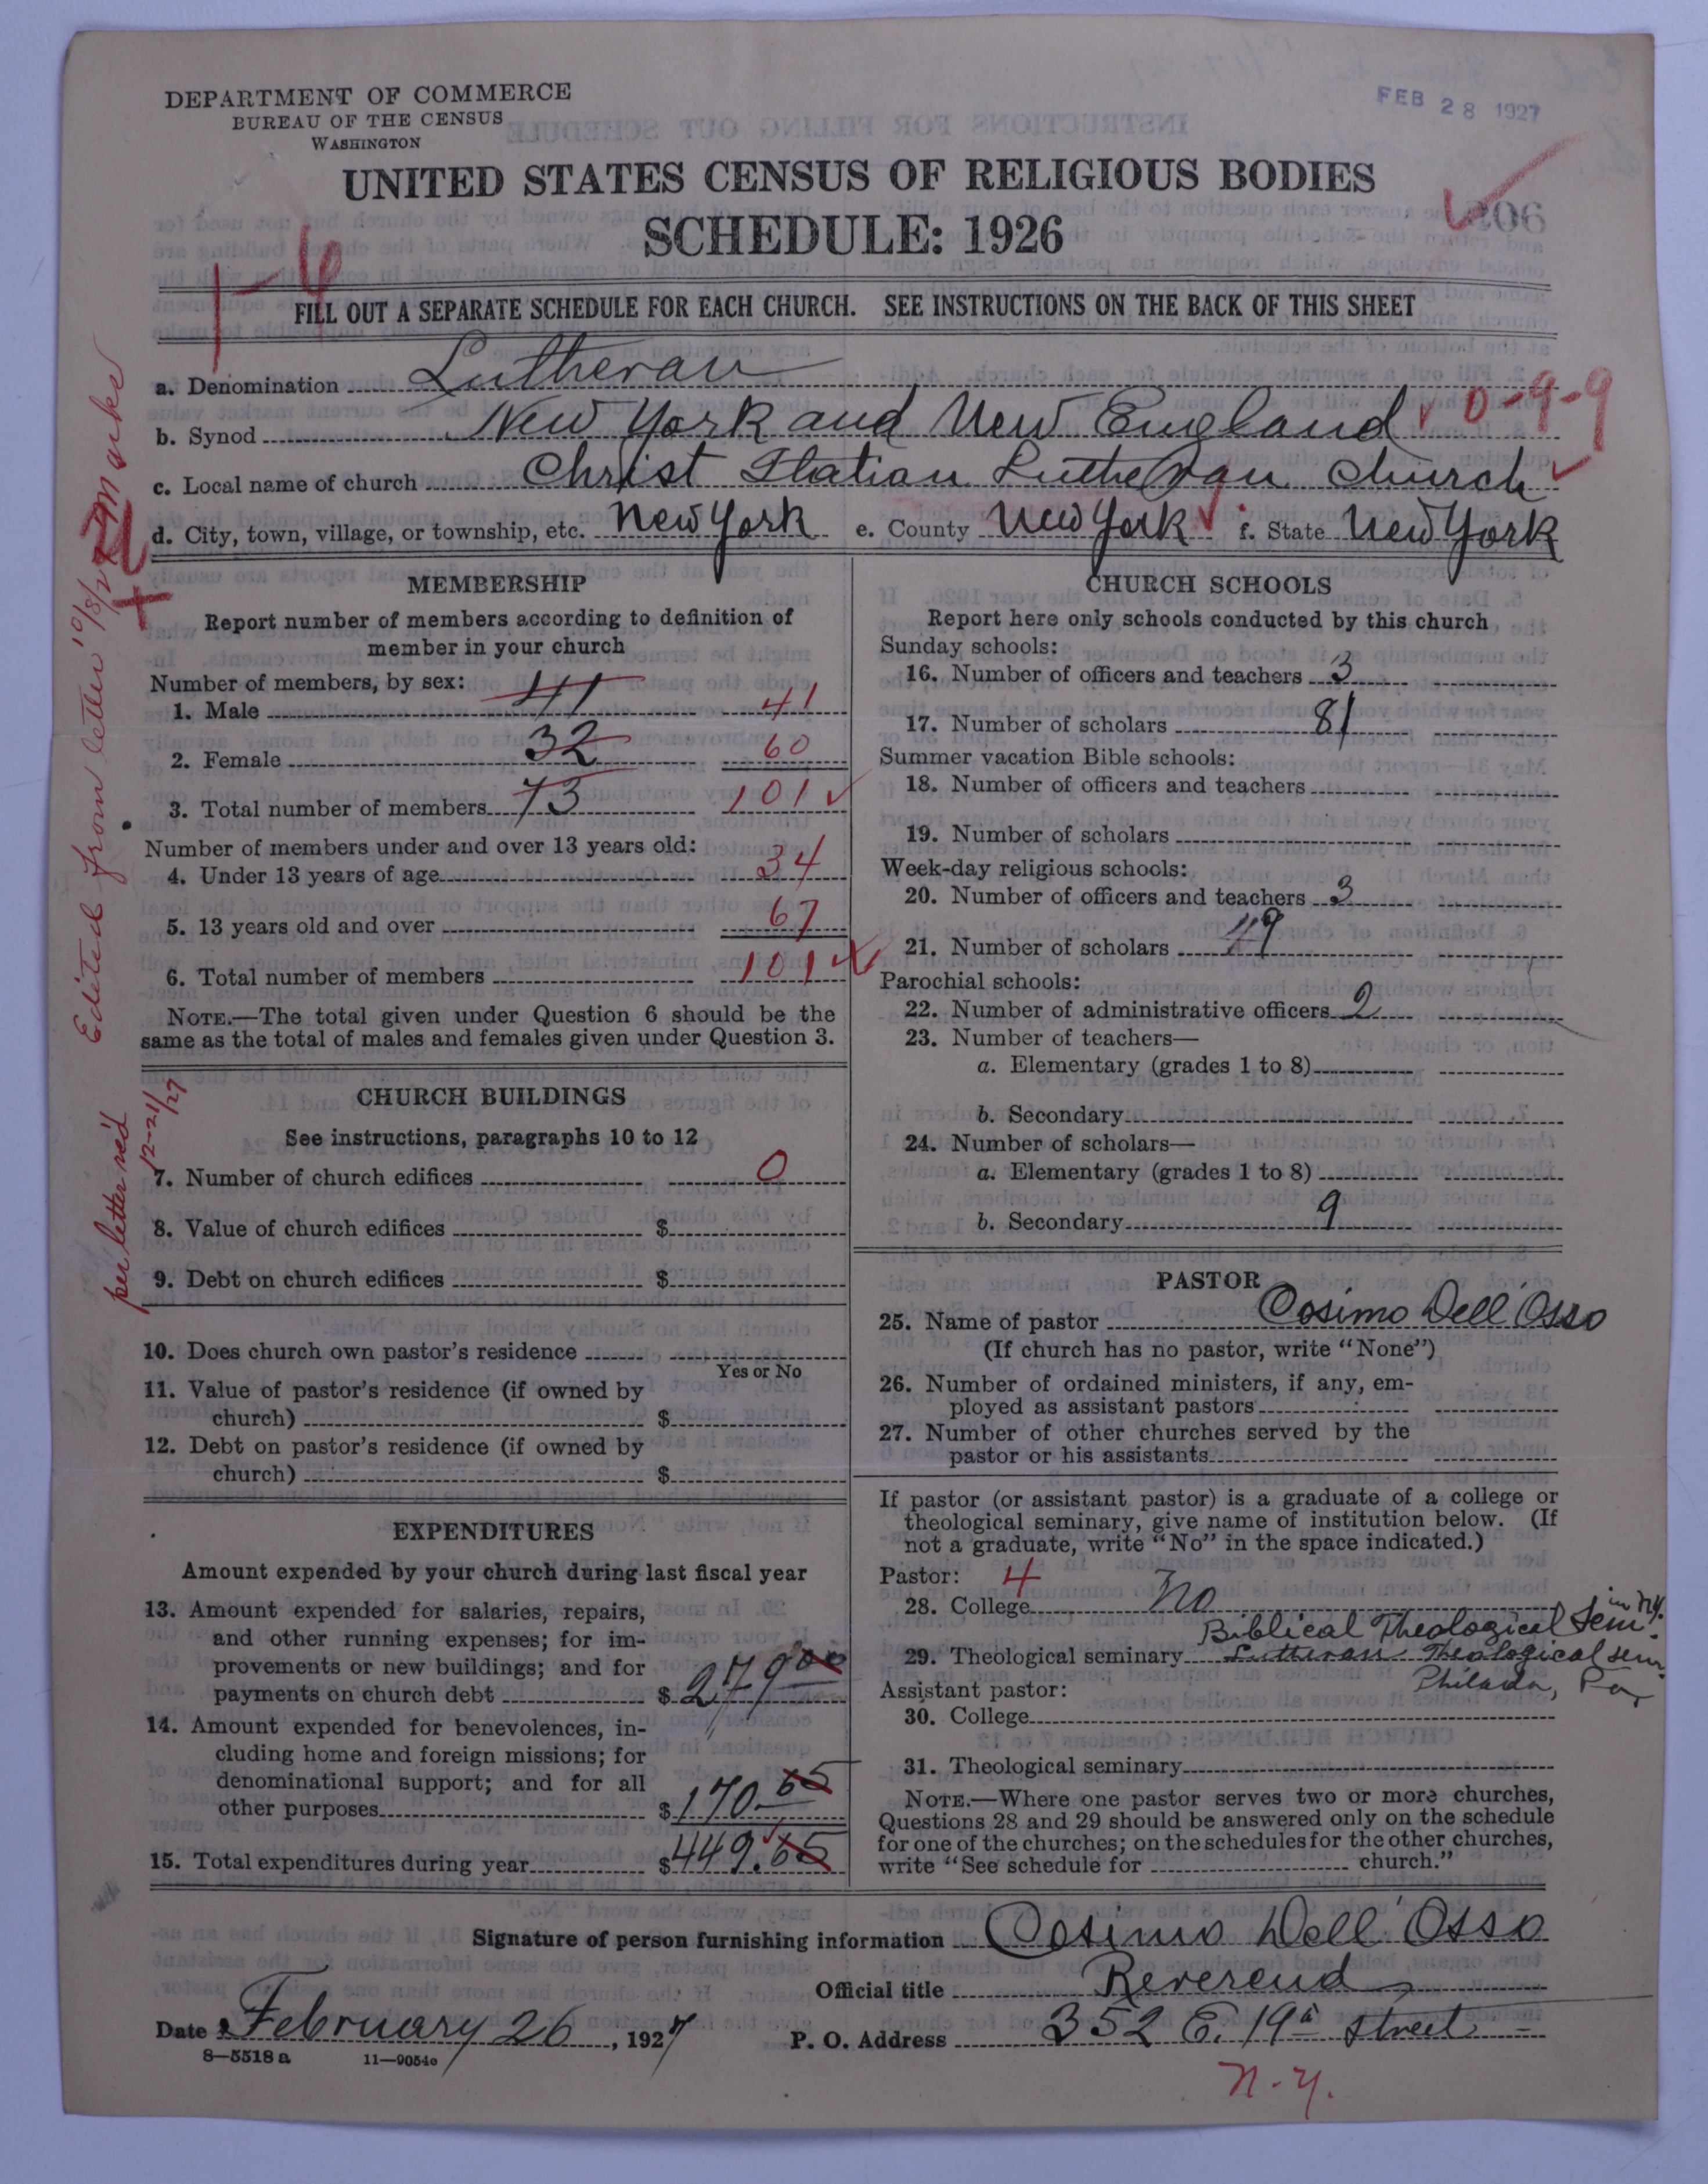 DEPARTMENT OF COMMERCE
BUREAU OF THE CENSUS
WASHINGTON
FEB 28 1927
UNITED STATES CENSUS OF RELIGIOUS BODIES
SCHEDULE: 1926
906
1-6
FILL OUT A SEPARATE SCHEDULE FOR EACH CHURCH. SEE INSTRUCTIONS ON THE BACK OF THIS SHEET
a. Denomination Lutheran
b. Synod New York and New England 0-9-9
c. Local name of church Christ Italian Lutheran Church
d. City, town, village, or township, etc. New York e. County New York f. State New York
MEMBERSHIP
Report number of members according to definition of
member in your church
Number of members, by sex:
1. Male 41 41
2. Female 32 60
3. Total number of members 73 101
Number of members under and over 13 years old:
4. Under 13 years of age 34
5. 13 years old and over 67
6. Total number of members 101
NOTE.—The total given under Question 6 should be the
same as the total of males and females given under Question 3.
Edited from letter 10/8/27
per letter rec'd
12-21/27
CHURCH BUILDINGS
See instructions, paragraphs 10 to 12
7. Number of church edifices 0
8. Value of church edifices $
9. Debt on church edifices $
10. Does church own pastor's residence
Yes or No
11. Value of pastor's residence (if owned by
church) $
12. Debt on pastor's residence (if owned by
church) $
EXPENDITURES
Amount expended by your church during last fiscal year
13. Amount expended for salaries, repairs,
and other running expenses; for im-
provements or new buildings; and for
payments on church debt $ 279 00
14. Amount expended for benevolences, in-
cluding home and foreign missions; for
denominational support; and for all
other purposes $ 170.65
15. Total expenditures during year $ 449.65
CHURCH SCHOOLS
Report here only schools conducted by this church
Sunday schools:
16. Number of officers and teachers 3
17. Number of scholars 81
Summer vacation Bible schools:
18. Number of officers and teachers
19. Number of scholars
Week-day religious schools:
20. Number of officers and teachers 3
21. Number of scholars 49
Parochial schools:
22. Number of administrative officers 2
23. Number of teachers—
a. Elementary (grades 1 to 8)
b. Secondary
24. Number of scholars—
a. Elementary (grades 1 to 8)
b. Secondary 9
PASTOR
25. Name of pastor Cosimo Dell'Osso
(If church has no pastor, write "None")
26. Number of ordained ministers, if any, em-
ployed as assistant pastors
27. Number of other churches served by the
pastor or his assistants
If pastor (or assistant pastor) is a graduate of a college or
theological seminary, give name of institution below. (If
not a graduate, write "No" in the space indicated.)
Pastor: 4
28. College No
in N.Y.
Biblical Theological Sem.
29. Theological seminary Lutheran Theological sem.
Philada, Pa,
Assistant pastor:
30. College
31. Theological seminary
NOTE.—Where one pastor serves two or more churches,
Questions 28 and 29 should be answered only on the schedule
for one of the churches; on the schedules for the other churches,
write "See schedule for church."
Signature of person furnishing information Cosimo Dell'Osso
Official title Reverend
Date February 26, 1927 P. O. Address 352 E. 19th Street
8—5518 a 11—9054
N.Y.